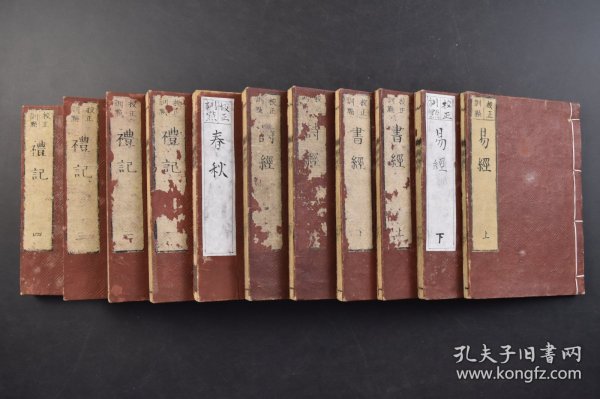 校正
訓點
易經
上
校正
訓點
易經
下
校正
訓點
書經
上
校正
訓點
書經
校正
詩經
校正
詩經
校正
訓點
春秋
校正
訓點
禮記
校正
訓點
禮記
校正
訓點
禮記
校正
訓點
禮記
四
孔夫子旧书网
www.kongfz.com